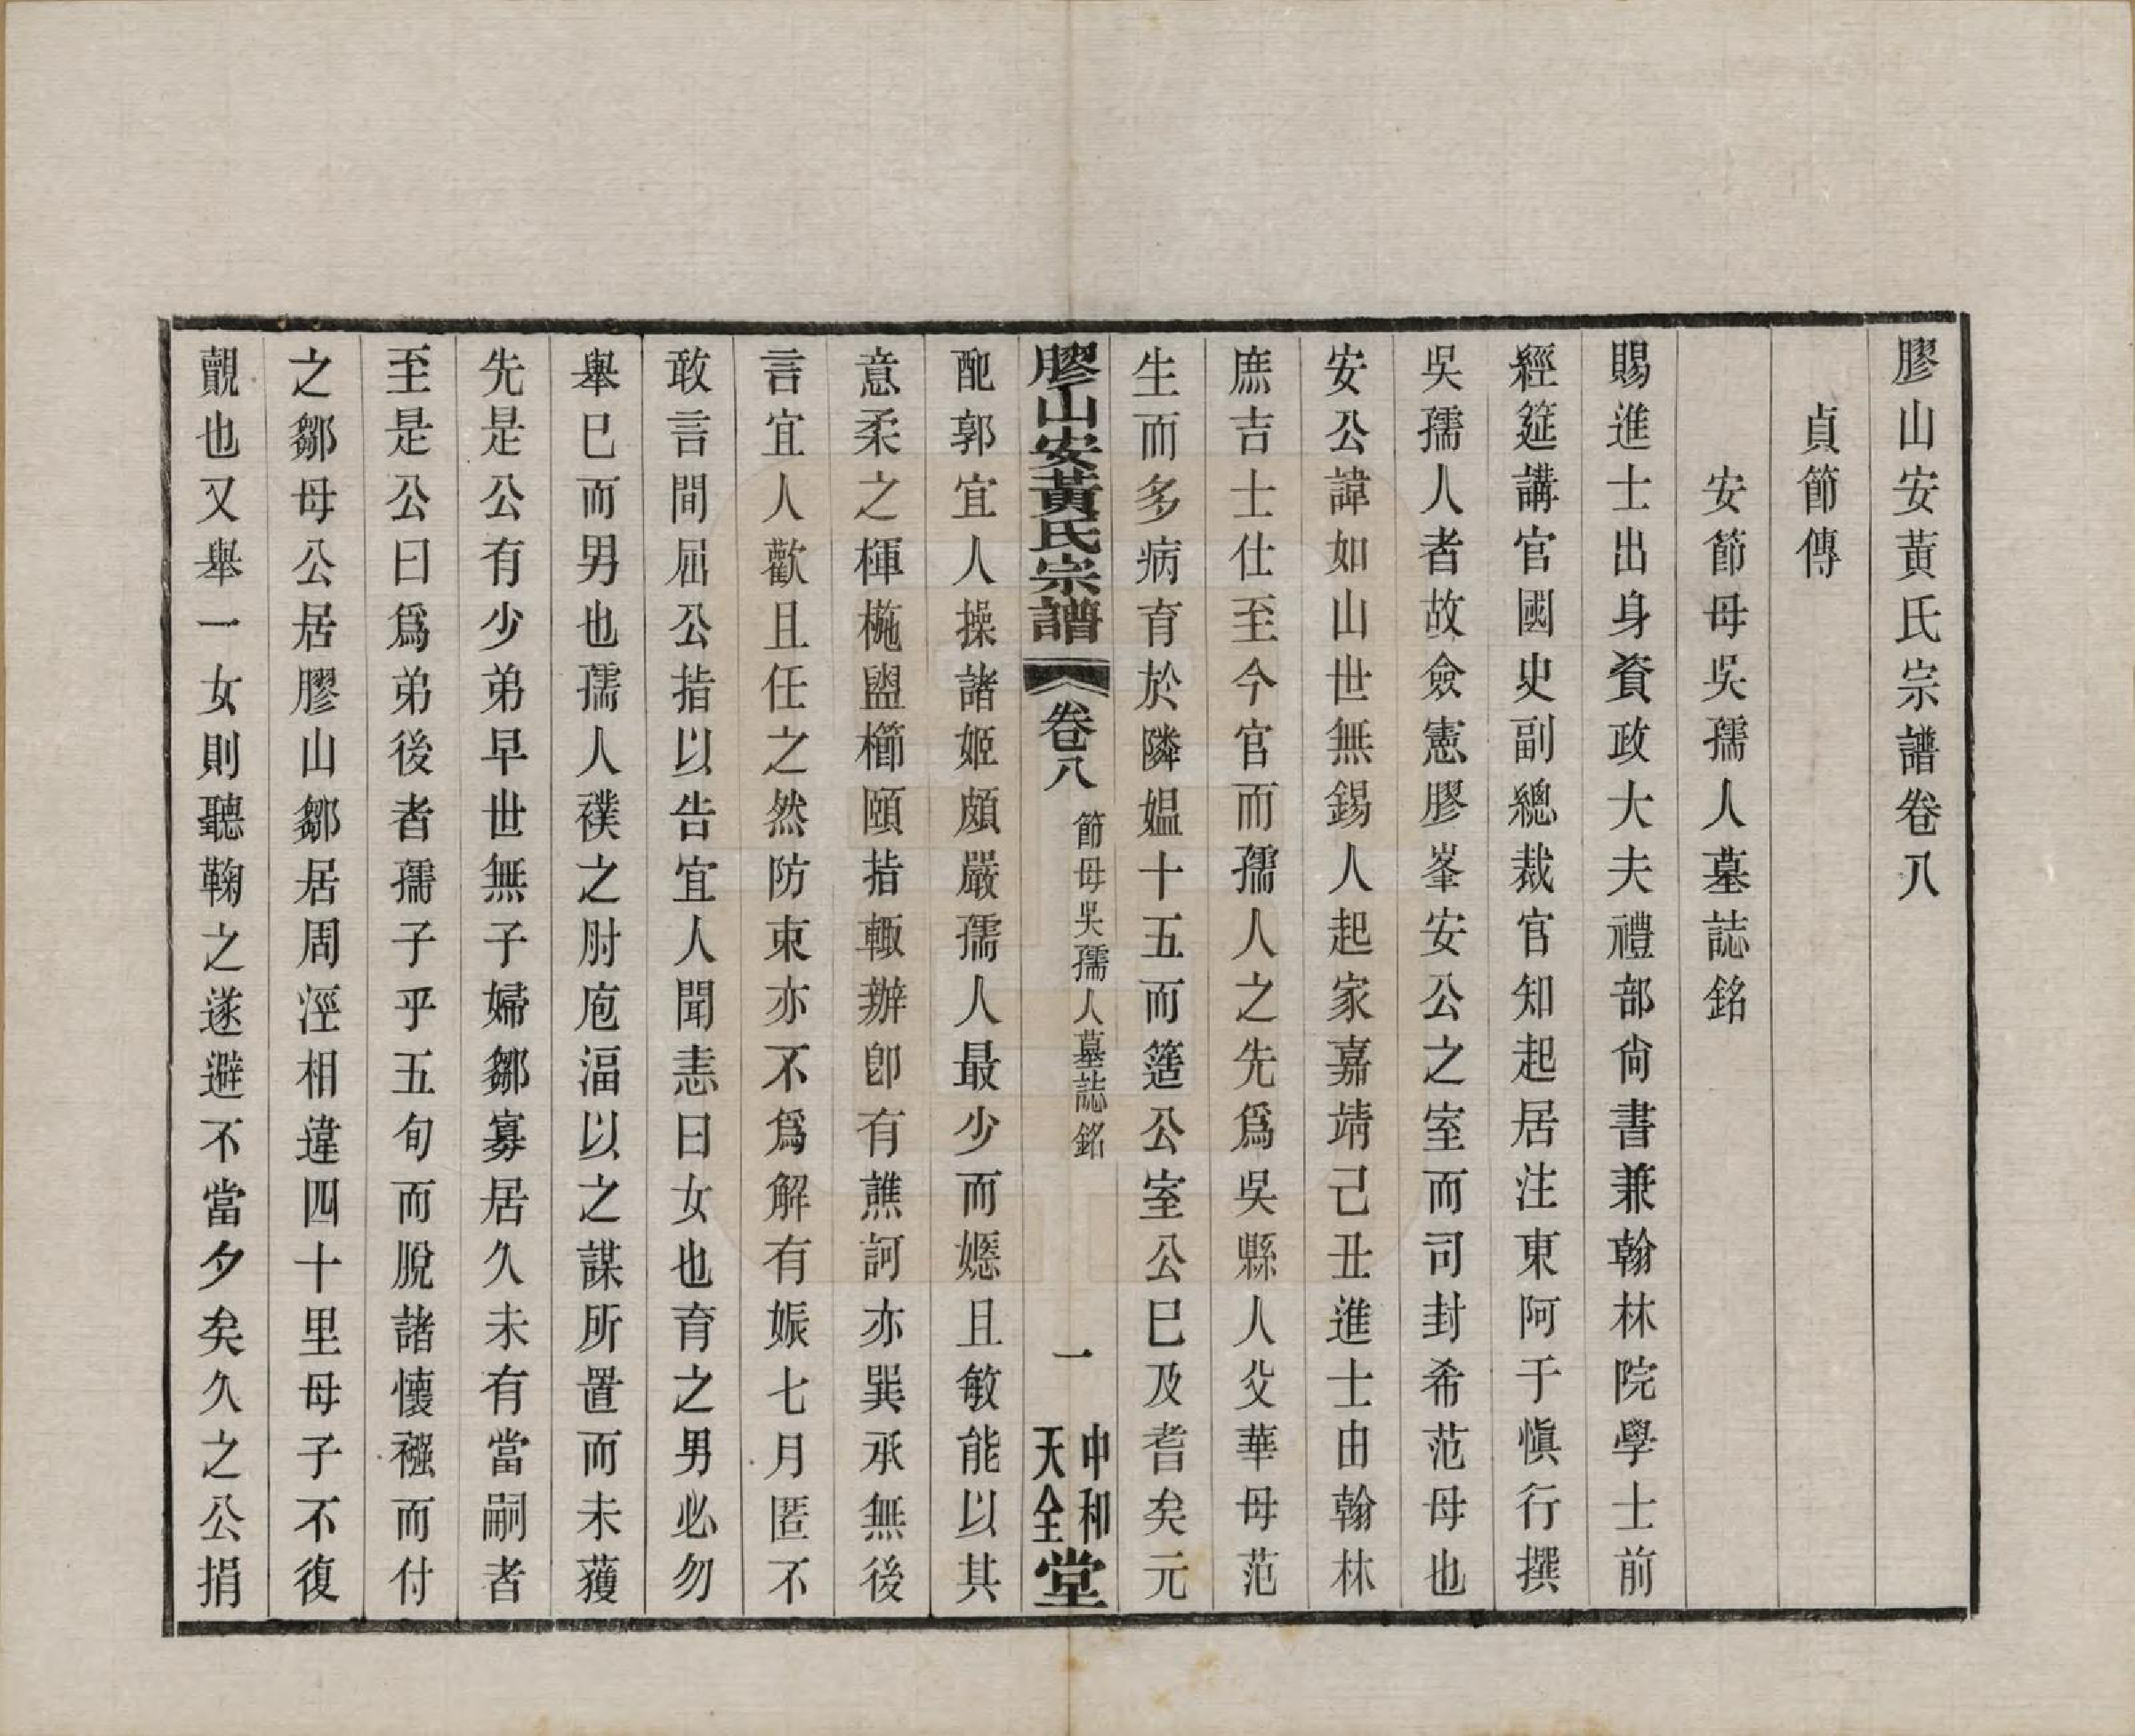 膠山安黃氏宗譜卷八
貞節傳
安節母吳孺人墓誌銘
賜進士出身資政大夫禮部尙書兼翰林院學士前
經筵講官國史副總裁官知起居注東阿于愼行撰
吳孺人者故僉憲膠峯安公之室而司封希范母也
安公諱如山世無錫人起家嘉靖己丑進士由翰林
庶吉士仕至今官而孺人之先爲吳縣人父華母范
生而多病育於隣媼十五而簉公室公巳及耆矣元
膠山安黃氏宗譜
卷八
節母吳孺人墓誌銘
一
中和
天全
堂
配郭宜人操諸姬頗嚴孺人最少而嬺且敏能以其
意柔之楎椸盥櫛頤指輙辦卽有譙訶亦巽承無後
言宜人歡且任之然防束亦不爲解有娠七月匿不
敢言間屆公指以告宜人聞恚曰女也育之男必勿
舉巳而男也孺人襆之肘庖湢以之謀所置而未獲
先是公有少弟早世無子婦鄒寡居久未有當嗣者
至是公曰爲弟後者孺子乎五旬而脫諸懷襁而付
之鄒母公居膠山鄒居周涇相違四十里母子不復
覿也又舉一女則聽鞠之遂避不當夕矣久之公捐